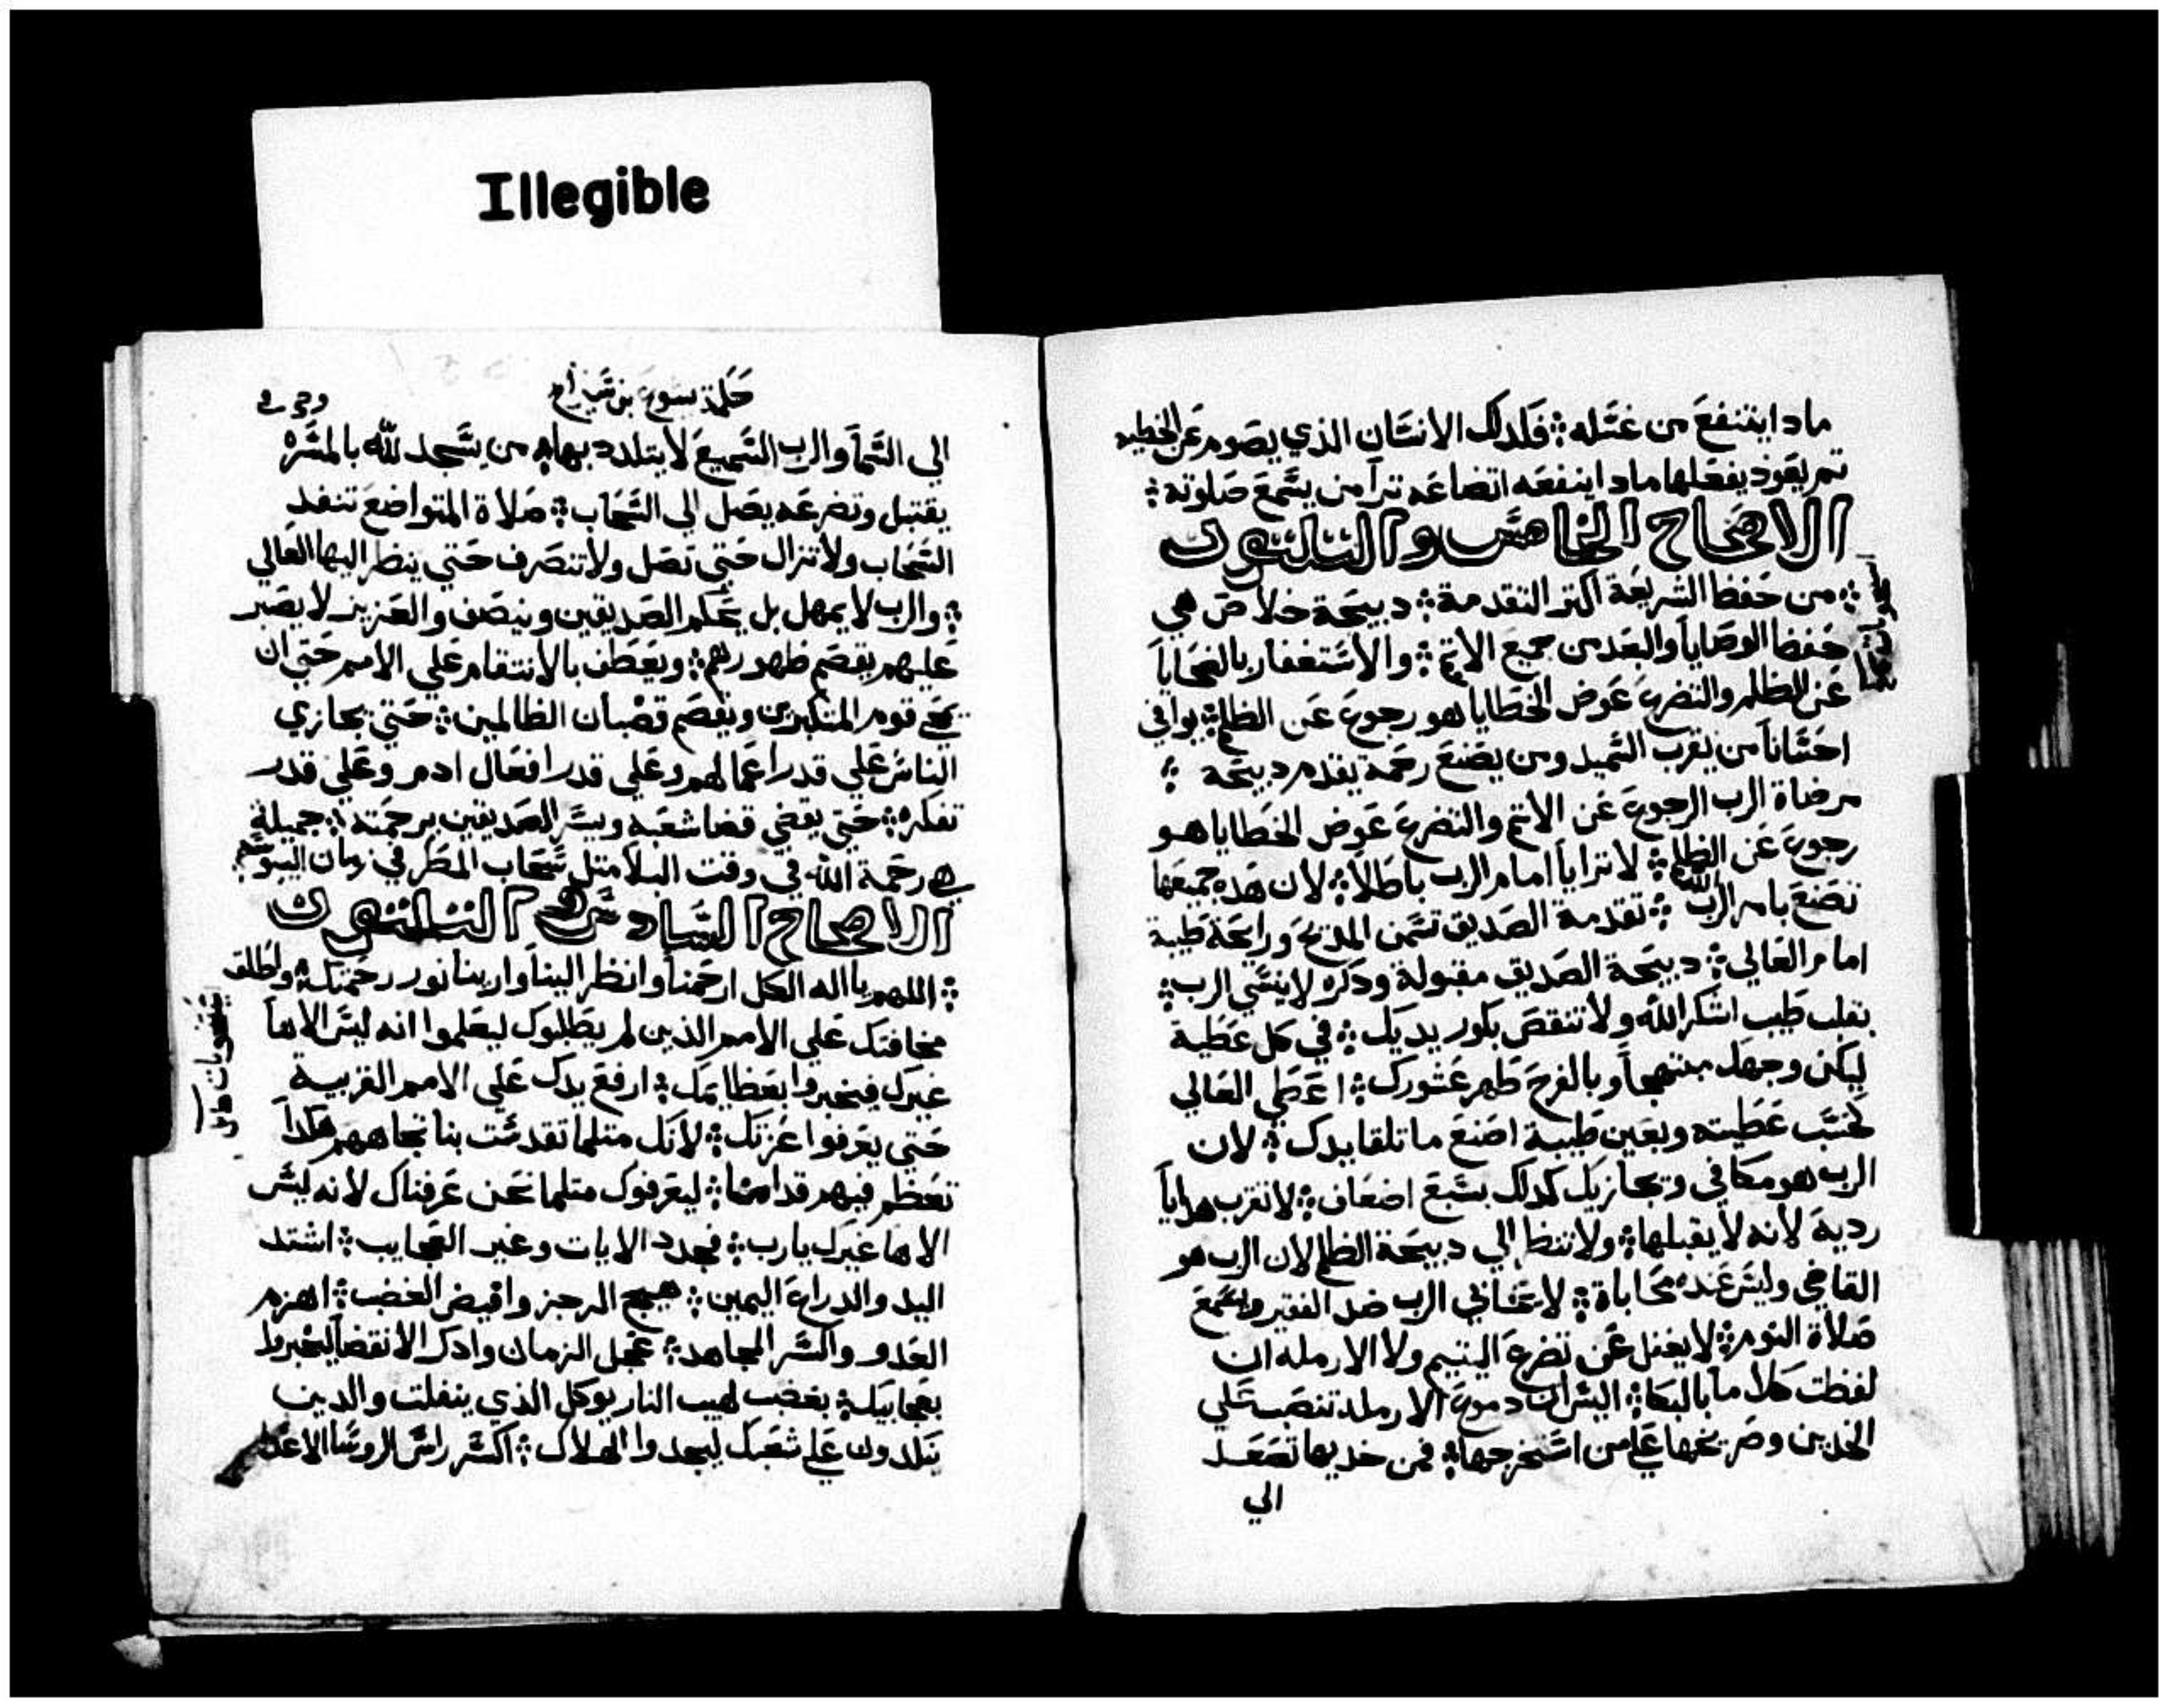 Illegible
مادا ينتفع من غسله ܀ فلدلك الانسان الذي يصوم عن الخطيه
تم يعود يفعلها مادا ينفعه اتضاعه ترا من يسمع صلوته ܀
الاصحاح الخامس والتلتون
܀ من حفظ الشريعة اكتر التقدمة ܀ دبيحة خلاص هي
حفظ الوصايا والبعد من جميع الاتم ܀ والاستغفار بالضحايا
عن الظلم والتضرع عوض الخطايا هو رجوع عن الظلم ܀ يوافي
احسانا من يقرب السميد ومن يصنع رحمة يقدم دبيحة ܀
مرضاة الرب الرجوع عن الاتم والتضرع عوض الخطايا هو
رجوع عن الظلم ܀ لا تترايا امام الرب باطلا ܀ لان هده جميعها
تصنع بامر الرب ܀ تقدمة الصديق تسمن المدبح ورايحة طيبة
امام العالي ܀ دبيحة الصديق مقبولة ودكره لا ينسي الرب ܀
بقلب طيب اشكر الله ولا تنقص بكور يديك ܀ في كل عطية
ليكن وجهك مبتهجا وبالفرح طهر عشورك ܀ اعطي العالي
كحسب عطيته وبعين طيبة اصنع ما تلقا يدك ܀ لان
الرب هو مكافي ويجازيك كدلك بسبع اضعاف ܀ لا تقرب هدايا
ردية لانه لا يقبلها ܀ ولا تنظر الي دبيحة الظلم لان الرب هو
القاضي وليس عنده محاباة ܀ لا يحابي الرب ضد الفقير ويسمع
صلاة المظلوم ܀ لا يغفل عن تضرع اليتيم ولا الارمله ان
لفظت كلاما بالبكا ܀ اليس ان دموع الارملة تنصب علي
الخدين وصريخها علي من استخرجها ܀ فمن خديها تصعد
الي
حكمة يشوع بن سيراخ
الي السما والرب السميع لا يتلدد بها ܀ من يسجد لله بالمسره
يقتبل وتضرعه يصل الي السحاب ܀ صلاة المتواضع تنفد
السحاب ولا تزال حتي تصل ولا تنصرف حتي ينظر اليها العالي
܀ والرب لا يمهل بل يحكم الصديقين وينصف والعزيز لا يصبر
عليهم يقصم ظهورهم ܀ ويعطف بالانتقام علي الامم حتي ان
يمحي قوم المتكبرين ويقصم قضبان الظالمين ܀ حتي يجازي
الناس علي قدر اعمالهم وعلي قدر افعال ادم وعلي قدر
تفكره ܀ حتي يقضي قضا شعبه ويسر الصديقين برحمته ܀ جميلة
هي رحمة الله في وقت البلا متل سحاب المطر في زمان اليبوسة
الاصحاح السادس والتلتون
܀ اللهم يا اله الكل ارحمنا وانظر الينا وارينا نور رحمتك ܀ واطلق
مخافتك علي الامم الذين لم يطلبوك ليعلموا انه ليس الاها
غيرك فيخبروا بعظايمك ܀ ارفع يدك علي الامم الغريبة
حتي يعرفوا عزتك ܀ لانك متلما تقدست بنا تجاههم هكدا
تعظم فيهم قدامنا ܀ ليعرفوك متلما نحن عرفناك لانه ليس
الاها غيرك يا رب ܀ فجدد الايات وغير العجايب ܀ اشتد
اليد والدراع اليمين ܀ هيج الرجز وافيض الغضب ܀ اهزم
العدو واكسر المجاهد ܀ عجل الزمان وادكر الانقضا ليخبروا
بعجايبك ܀ بغضب لهيب النار يوكل الذي ينفلت والدين
ينكدون علي شعبك ليجدوا الهلاك ܀ اكسر راس الروسا الاعدا